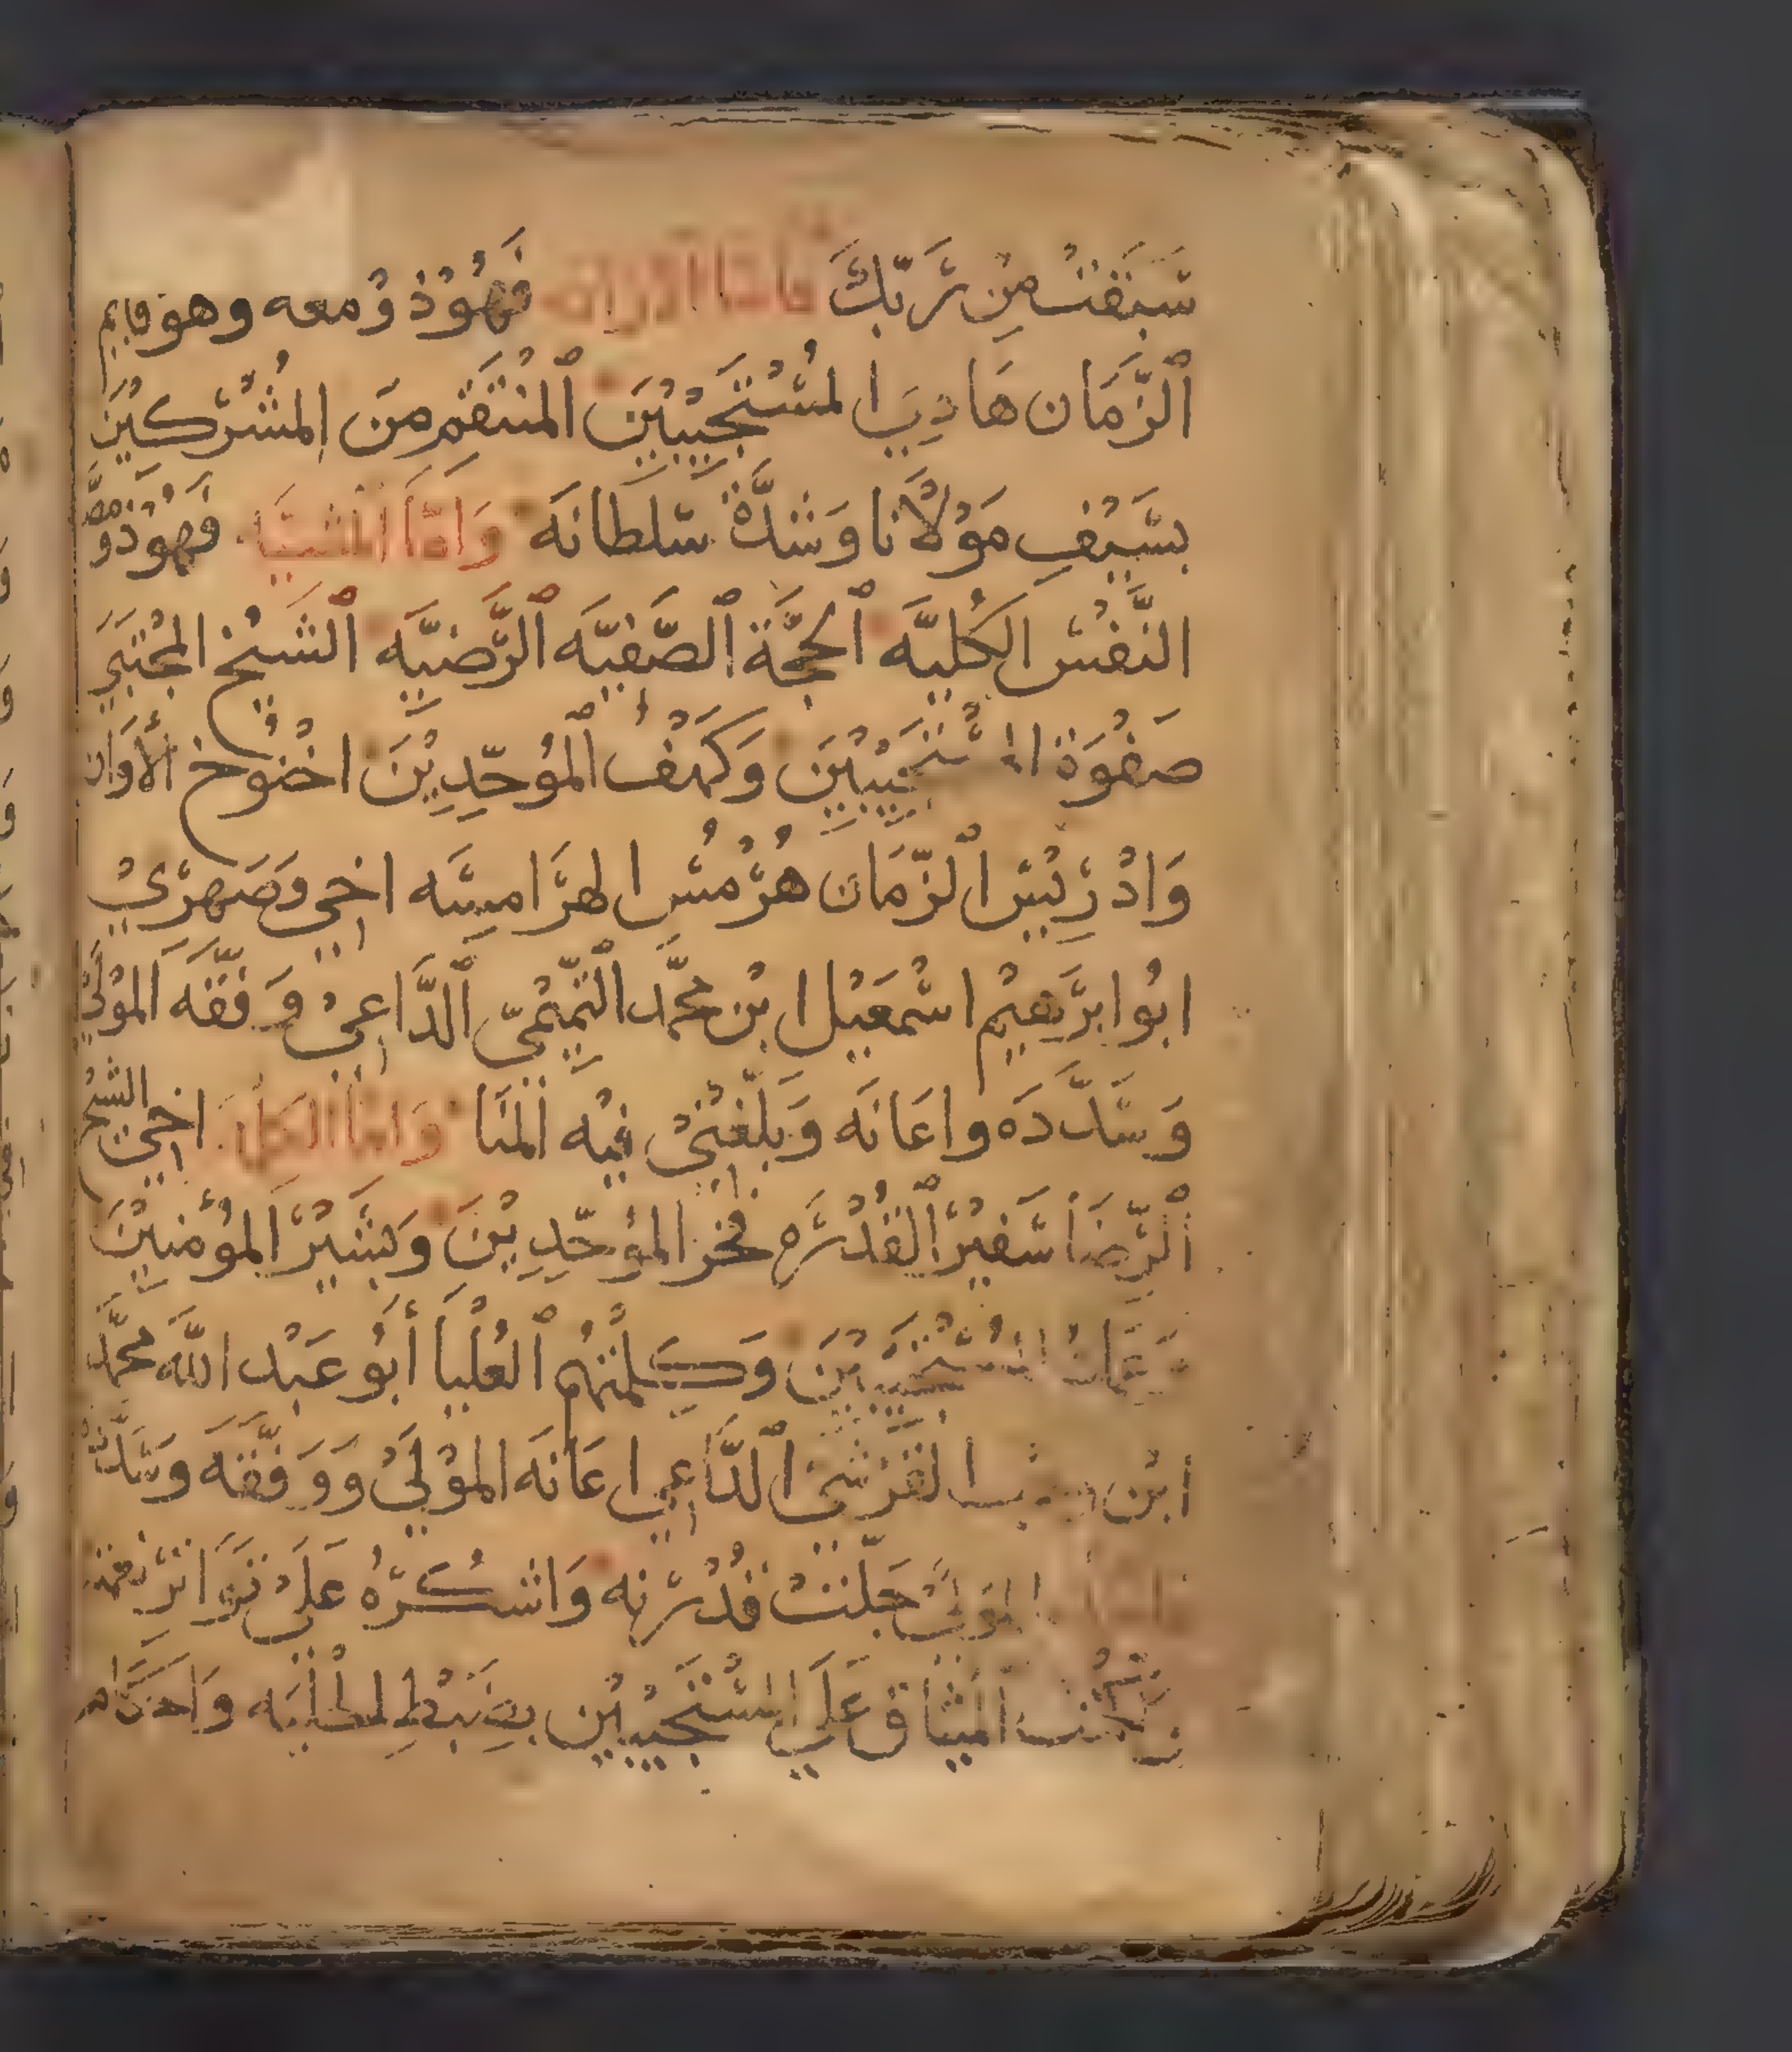 سَبَقَتْ مِنْ رَبِّكَ فامّا الاراده فَهُوْ ذُوْ معه وهو قايم
ٱلزَّمَان هَادِيَ المُسْتَجِيْبِيْنَ ٱلمُنْتَقِم مِنَ المُشْرِكِيْنَ
بسَيْفِ مَوْلَانا وَشدَّة سُلطانَه وَامَّا المَشيَّه فَهُوْ ذُوْ مصَّه
النَّفْسْ الكُليَّه ٱلحجَّة ٱلصَّفيَّه ٱلرَّضيَّه ٱلشَيْخ المُجْتَبَى
صَفْوَة المُسْتَجِيْبِيْنَ وَكَهْفُ ٱلمُوَحِّدِيْنَ اخْنُوْخ ٱلأَوَان
وَادْرِيْسْ ٱلزَّمَان هُرْمُسْ الهَرَامِسَه اخِي وَصَهْرِيْ
ابُو ابرَهِيْم اسْمَعِيْل ابْن محمَّد ٱلتَّمِيْمِيّ ٱلدَّاعِيْ وَفَّقَهُ المَوْلَى
وَسَدَّدَه واعَانَه وَبَلّغنِيْ فيْه المُنَا وَامَّا الكَلِمَه اخِي الشيْخ
ٱلرِّضَا سَفِيْرُ ٱلقُدْرَه فَخر المُوَحِّدِيْنَ وَبَشيْرُ المُؤْمِنِيْنَ
وَعِمَادُ المُسْتَجِيْبِيْنَ وَكَلِمَتُهُم ٱلعُلْيَا أبُو عَبْد اللَّه محمَّد
ابْن وهب القُرَشيّ ٱلدَّاعِي اعَانَه المَوْلَى وَوَفَّقَه وَسَدَّدَه
المَوْلَى جَلَّتْ قُدْرَته وَاشكُرُهُ عَلَى تَوَاتر نعمه
المِيْثَاق عَلَى المُسْتَجِيْبِيْن بضَبْطِ